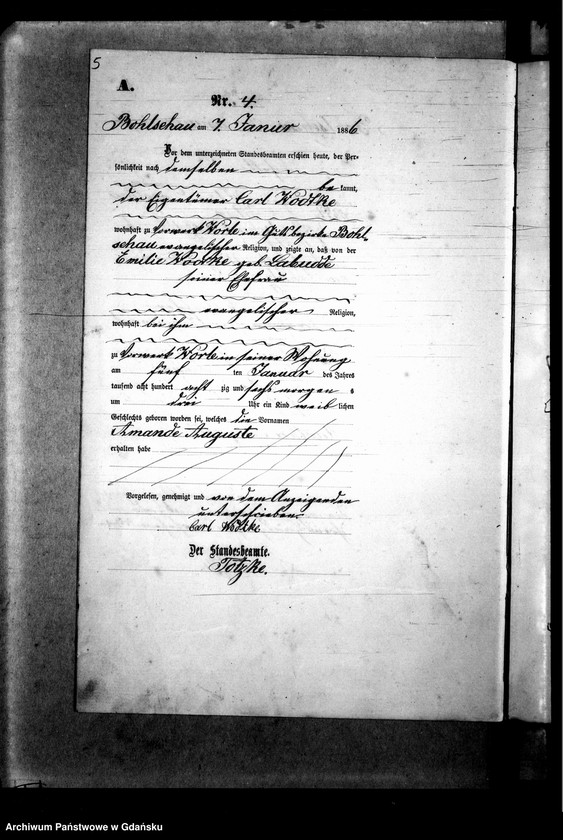 5
A.
Nr. 4.
Bohlschau am 7. Janur 1886
Vor dem unterzeichneten Standesbeamten erschien heute, der Per-
sönlichkeit nach demselben
be kannt,
der Eigentümer Carl Wodtke
wohnhaft zu Vorwerk Worle im Gutsbezirke Bohl-
schau evangelischer Religion, und zeigte an, daß von der
Emilie Wodtke geb. Labudde
seiner Ehefrau
evangelischer Religion,
wohnhaft bei ihm
zu Vorwerk Worle in seiner Wohnung
am fünf ten Januar des Jahres
tausend acht hundert acht zig und sechs morgen s
um drei Uhr ein Kind weib lichen
Geschlechts geboren worden sei, welches die Vornamen
Amande Auguste
erhalten habe
Vorgelesen, genehmigt und von dem Anzeigenden
unterschrieben.
Carl Wodtke
Der Standesbeamte.
Totzke.
Archiwum Państwowe w Gdańsku